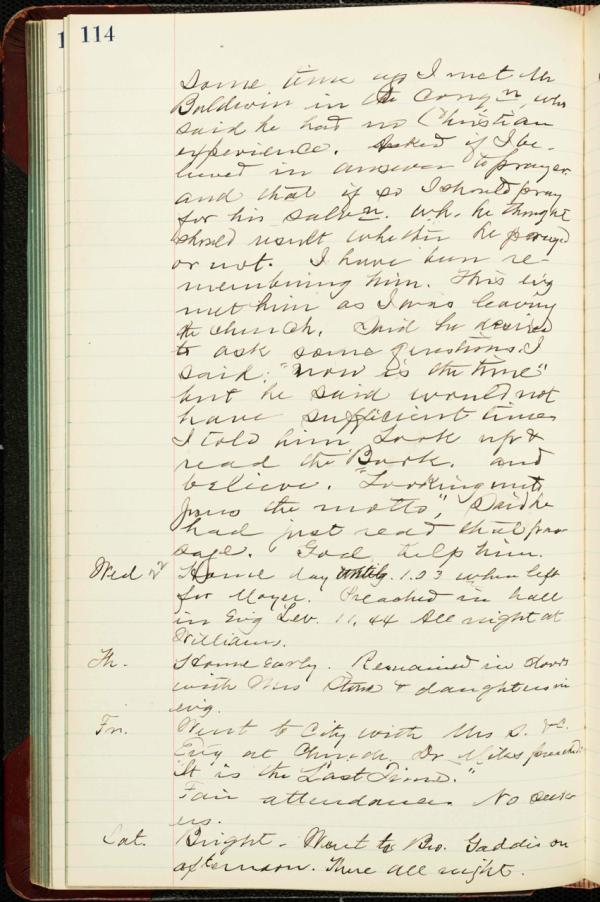 1
114
Some time ago I met Mr
Baldwin in the Congn, who
said he had no Christian
experience. Asked if I be-
lieved in answer to prayer
and that if so I should pray
for his salvn. wh. he thought
should result whether he prayed
or not. I have been re-
membering him. This evg
met him as I was leaving
the church. Said he desired
to ask some questions. I
said; "now is the time"
but he said would not
have sufficient time
I told him Look up &
read the Book. and
believe. "Looking unto
Jesus the motto," Said he
had just read that pas-
sage. God help him.
Wed 22 Home day until 1.03 when left
for Moyer. Preached in hall
in Evg Lev. 11,44 All night at
Williams.
Th. Home early. Remained in doors
with Mrs Stone & daughters in
evg.
Fri. Went to City with Mrs S. &c.
Evg at Church. Dr Miles preached:
"It is the Last Time."
Fair attendance. No seek-
ers.
Sat. Bright - Went to Bro. Gaddis on
afternoon. There all night.